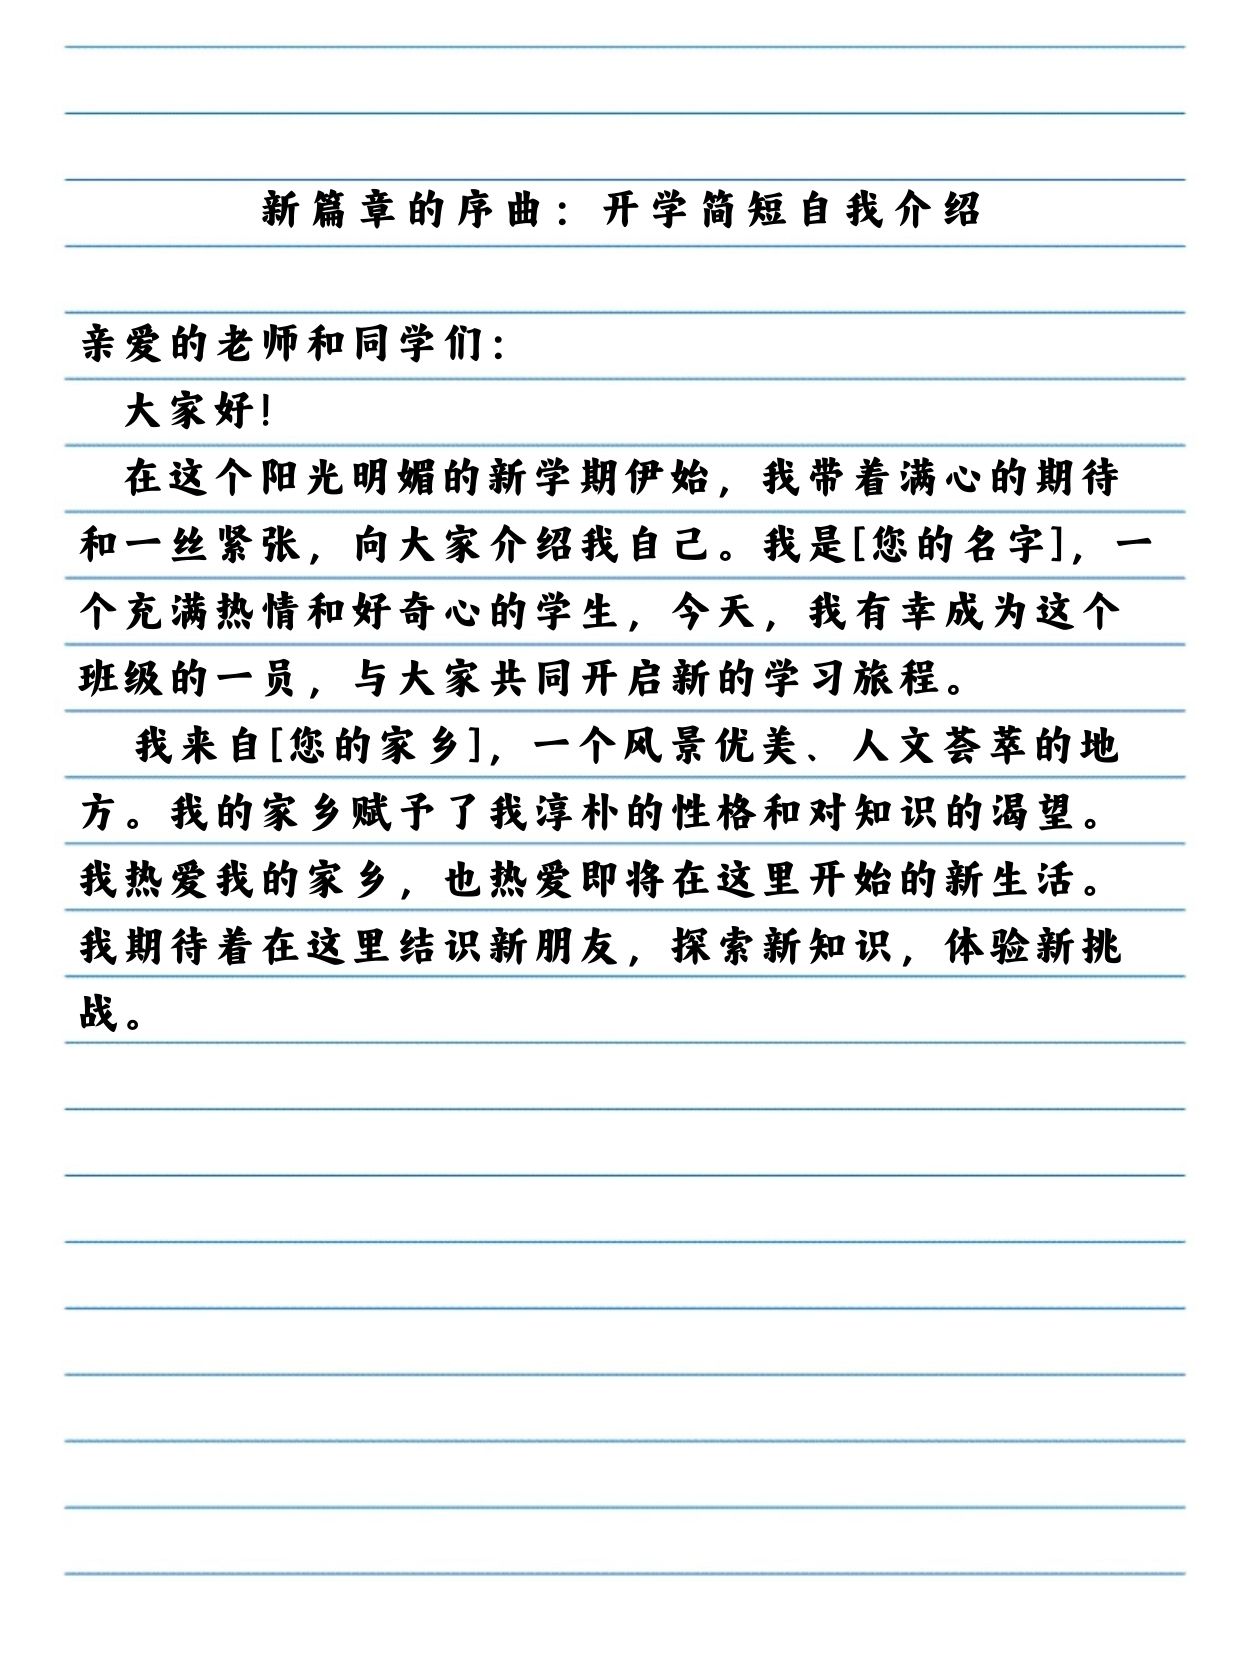 新篇章的序曲：开学简短自我介绍
亲爱的老师和同学们：
大家好！
在这个阳光明媚的新学期伊始，我带着满心的期待
和一丝紧张，向大家介绍我自己。我是[您的名字]，一
个充满热情和好奇心的学生，今天，我有幸成为这个
班级的一员，与大家共同开启新的学习旅程。
我来自[您的家乡]，一个风景优美、人文荟萃的地
方。我的家乡赋予了我淳朴的性格和对知识的渴望。
我热爱我的家乡，也热爱即将在这里开始的新生活。
我期待着在这里结识新朋友，探索新知识，体验新挑
战。